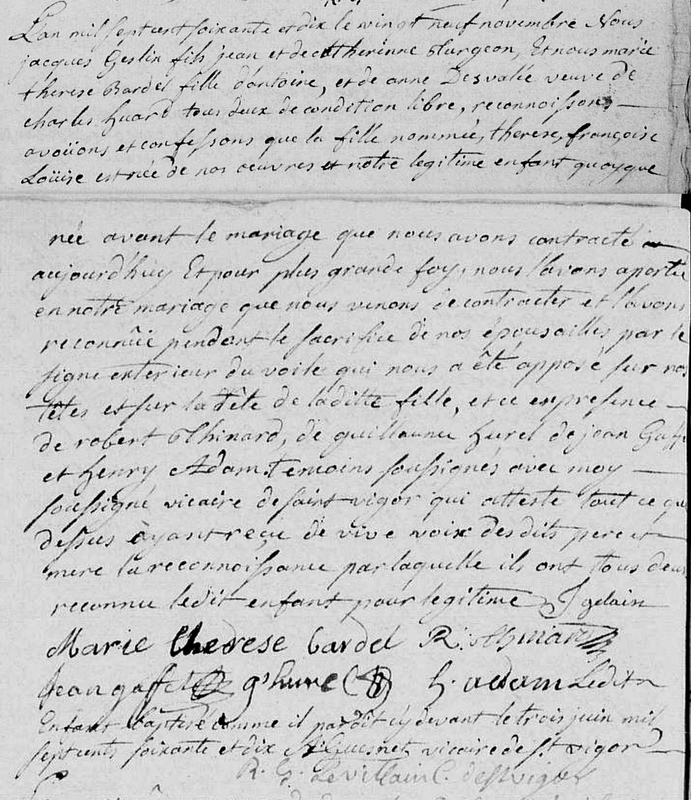 L'an mil sept cent soixante et dix le vingt neuf novembre Nous
jacques Geslin fils jean et de catherinne Turgeon, Et nous marie
therese Bardel fille d'antoine, et de anne Desvallé veuve de
charles huard tous deux de condition libre, reconnoissons
avoüons et confessons que la fille nommée, therese, françoise
Loüise est née de nos oeuvres et notre legitime enfant quoyque
née avant le mariage que nous avons contracté
aujourd'huy Et pour plus grande foy, nous l'avons aporté
en notre mariage que nous venons de contracter et l'avons
reconnüe pendant le sacrifice de nos épousailles par le
signe exterieur du voile qui nous a êté apposé sur nos
têtes et sur la tête de laditte fille, et ce en presence
de robert Thinard, de guillaume hurel de jean Gaffé
et henry Adam temoins soussignés avec moy
soussigné vicaire de saint vigor qui atteste tout ce que
dessus ayant reçu de vive voix des dits pere et
mere la reconnoissance par laquelle ils ont tous deux
reconnu ledit enfant pour legitime J gelain
Marie therese bardel R.
Jean gaffé g hure h. adam Ledit
Enfant baptisé comme il paroit cy devant le trois juin mil
sept cents soixante et dix vicaire de st vigor
R. G. Levillain C. de st vigor